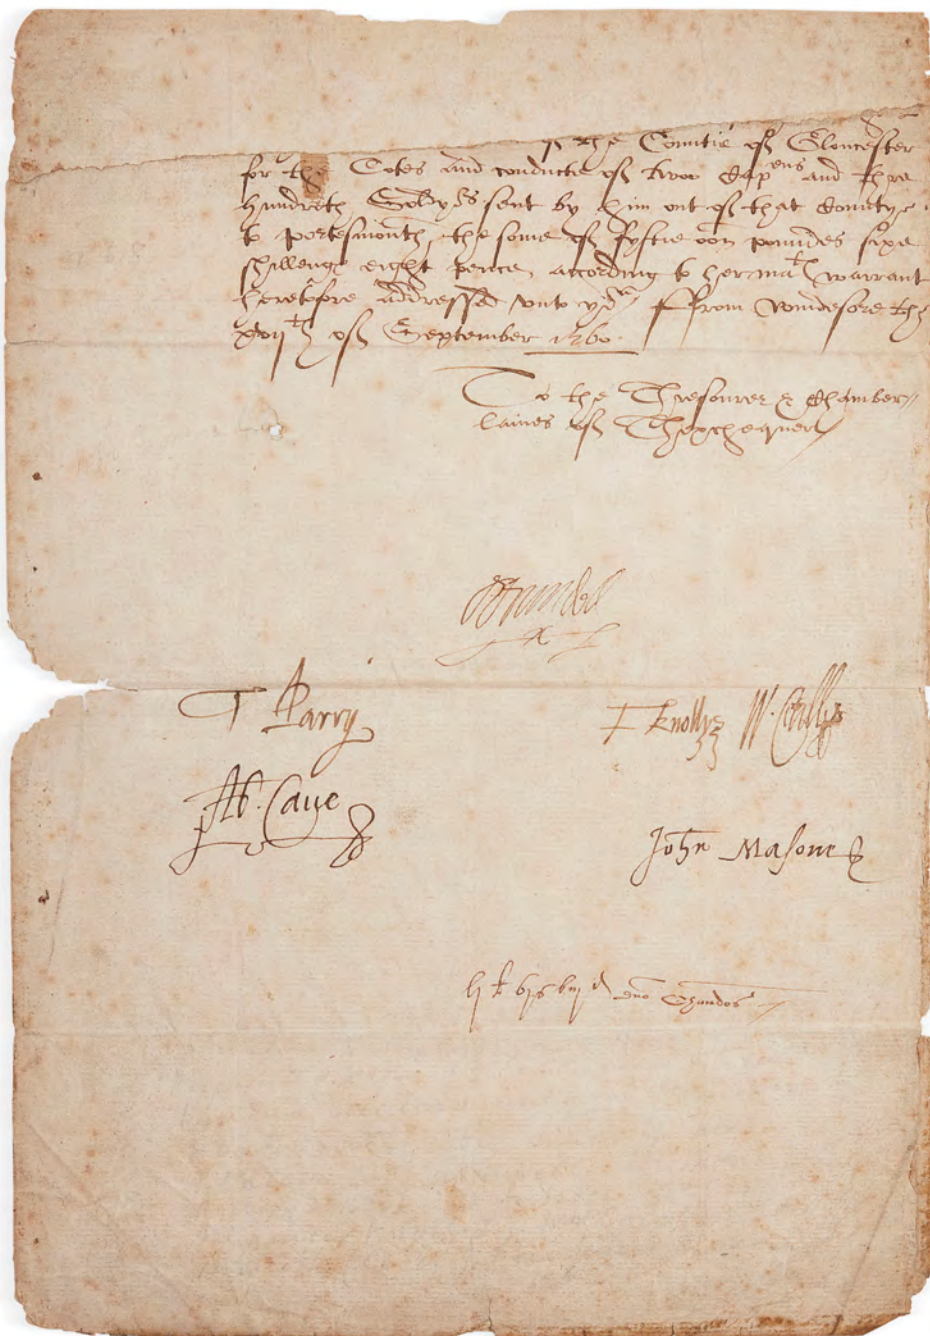 in the Countie of Gloucester
for the Cotes and conducte of twoo Capens and thre
hundreth Sold yrs sent by him out of that Countye
to Portesmouth, the some of fyftie oon poundes sixe
shillengs eight pence, according to her ma^t warrant
heretofore addressed unto you. ffrom Windesore the
of September 1560.
To the Thresourer & Chamber//
laines of Thexchequer
Arundell
T Parry
F Knollys W. Cecill
Ab. Cave
John Masone
dno Chandos